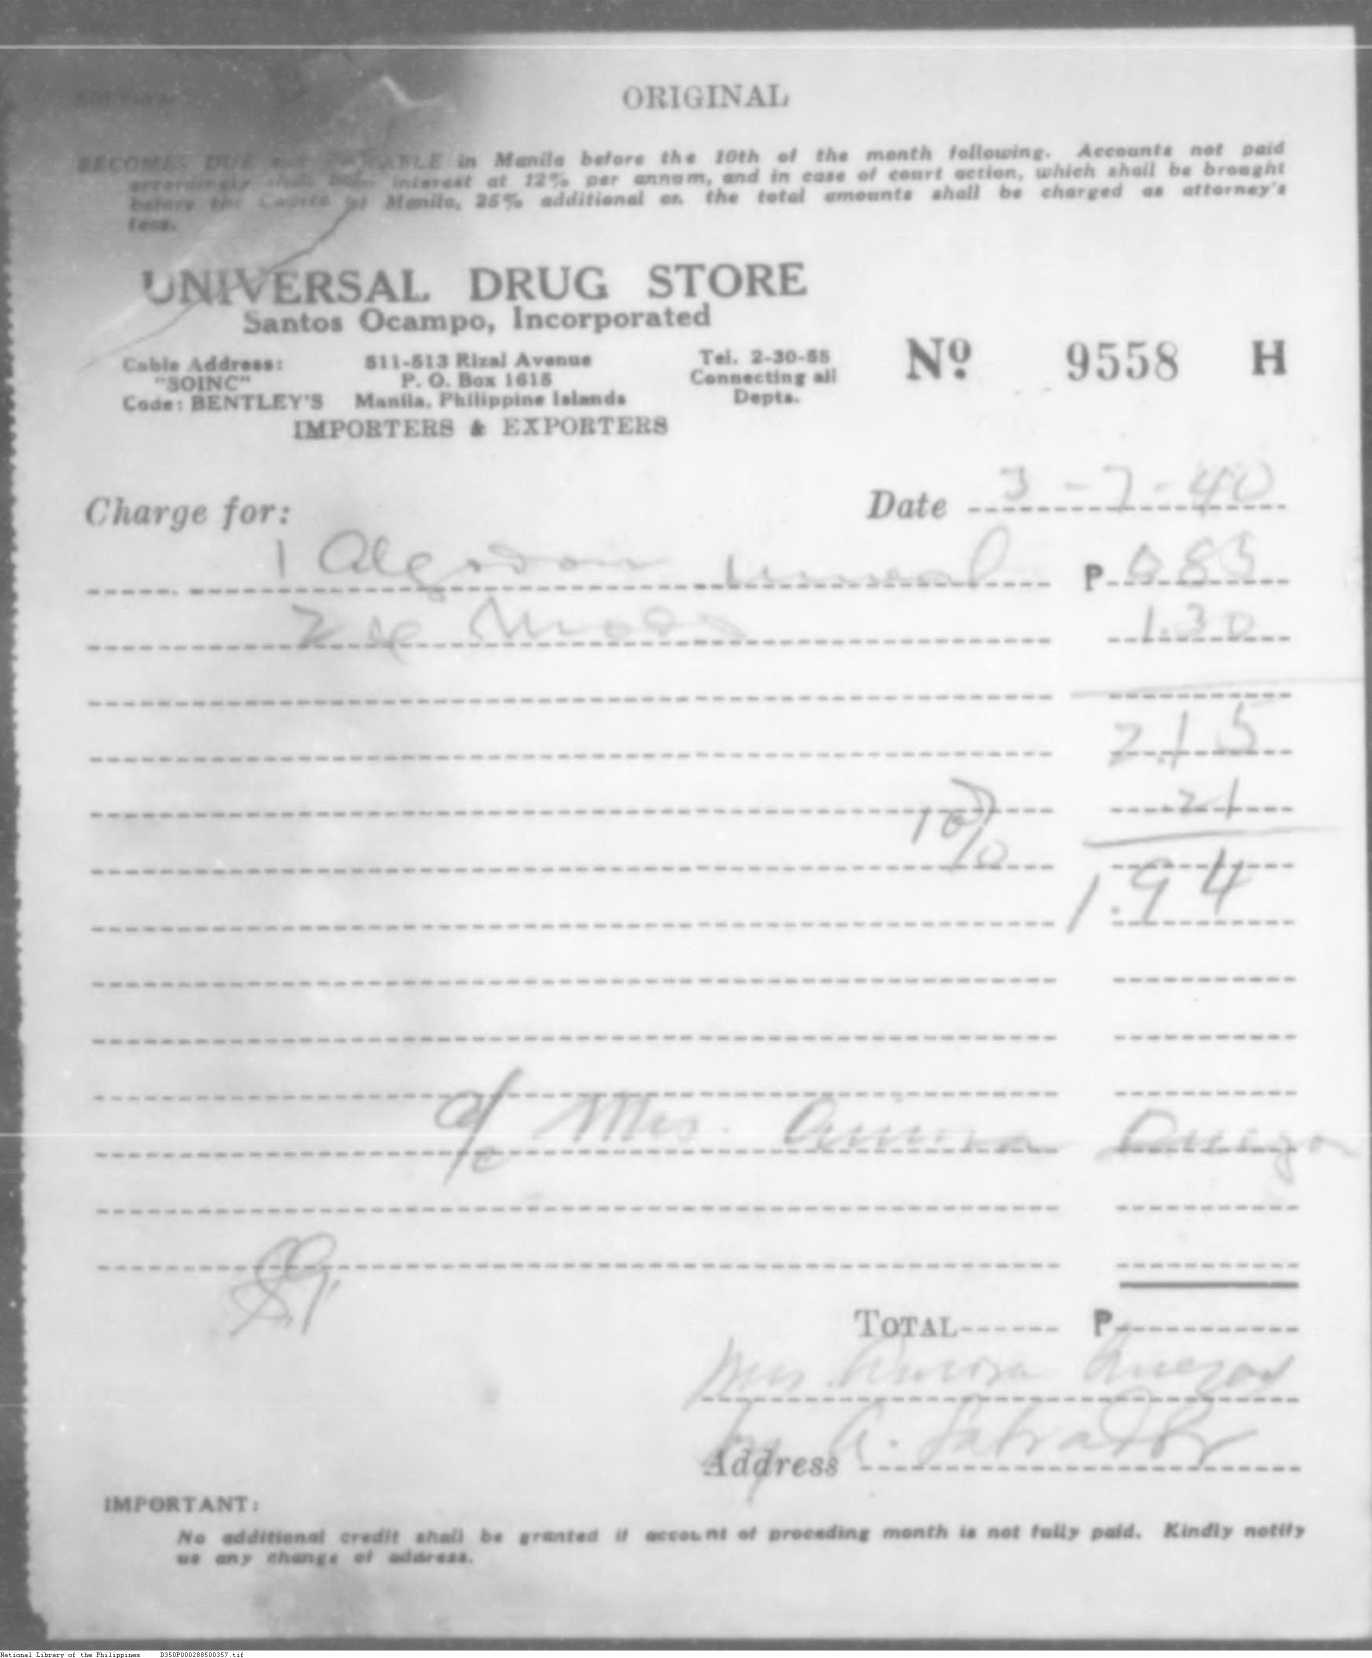 ORIGINAL
BECOMES DUE and PAYABLE in Manila before the 10th of the month following. Accounts not paid
accordingly shall bear interest at 12% per annum, and in case of court action, which shall be brought
before the Courts of Manila, 25% additional on the total amounts shall be charged as attorney's
fees.
UNIVERSAL DRUG STORE
Santos Ocampo, Incorporated
Cable Address: 511-513 Rizal Avenue Tel. 2-30-55
"SOINC" P. O. Box 1615 Connecting all
Code: BENTLEY'S Manila, Philippine Islands Depts.
IMPORTERS & EXPORTERS
Nº 9558 H
Charge for: Date 3-7-40
1 Algodon P 0.85
2 1.30
2.15
10% .21
1.94
a/c Mrs. Aurora Quezon
TOTAL P
Mrs. Aurora Quezon
by A. Labrador
Address
IMPORTANT:
No additional credit shall be granted if account of proceding month is not fully paid. Kindly notify
us any change of address.
National Library of the Philippines D350P000288500357.tif